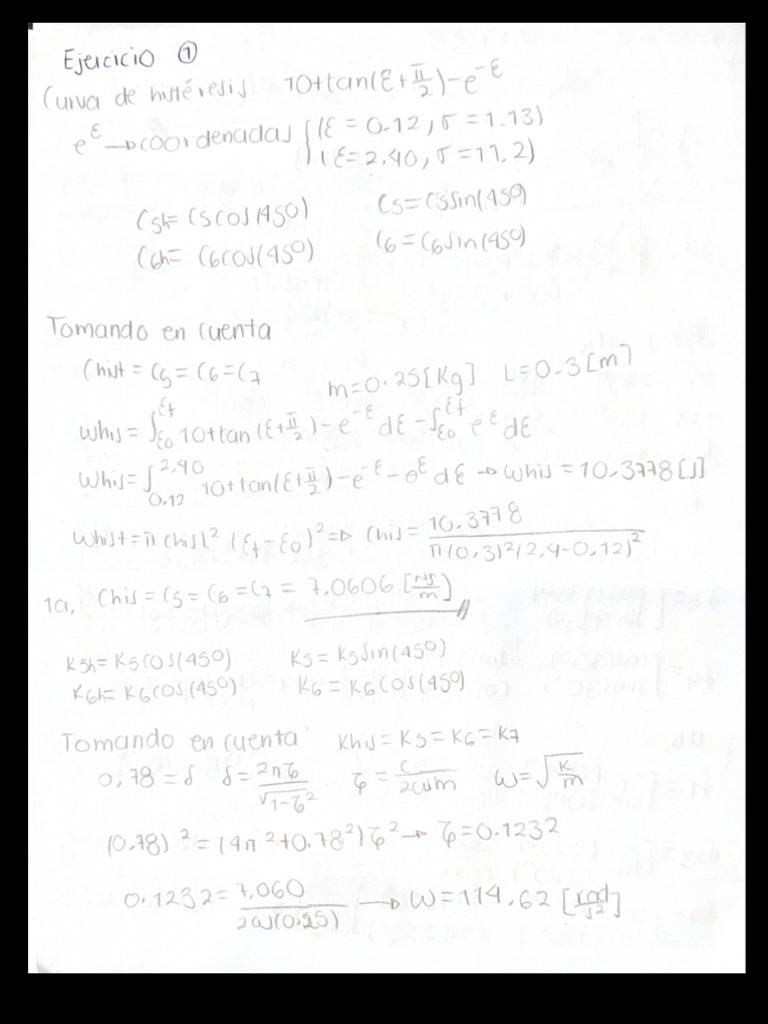 Ejercicio ①
Curva de histéresis 10+tan(ε+π/2)-e^-ε
e^ε → coordenadas { (ε = 0.12, σ = 1.13)
(ε = 2.40, σ = 11.2)
C5h = C5cos(45°) C5 = C5sin(45°)
C6h = C6cos(45°) C6 = C6sin(45°)
Tomando en cuenta
Chist = C5 = C6 = C7 m = 0.25[Kg] L = 0.3[m]
Whis = ∫_ε0^εf 10+tan(ε+π/2)-e^-ε dε - ∫_ε0^εf e^ε dε
Whis = ∫_0.12^2.40 10+tan(ε+π/2)-e^-ε - e^ε dε → Whis = 10.3778[J]
Whist = π chis l² (εf - ε0)² => Chis = 10.3778 / π(0.3)²(2.4-0.12)²
1a, Chis = C5 = C6 = C7 = 7.0606 [Ns/m]
K5h = K5cos(45°) K5 = K5sin(45°)
K6h = K6cos(45°) K6 = K6cos(45°)
Tomando en cuenta Khis = K5 = K6 = K7
0,78 = δ δ = 2πζ/√1-ζ² ζ = C/2ωm ω = √K/m
(0.78)² = (4π²+0.78²)ζ² → ζ = 0.1232
0.1232 = 7,060/2ω(0.25) → ω = 114.62 [rad/s²]